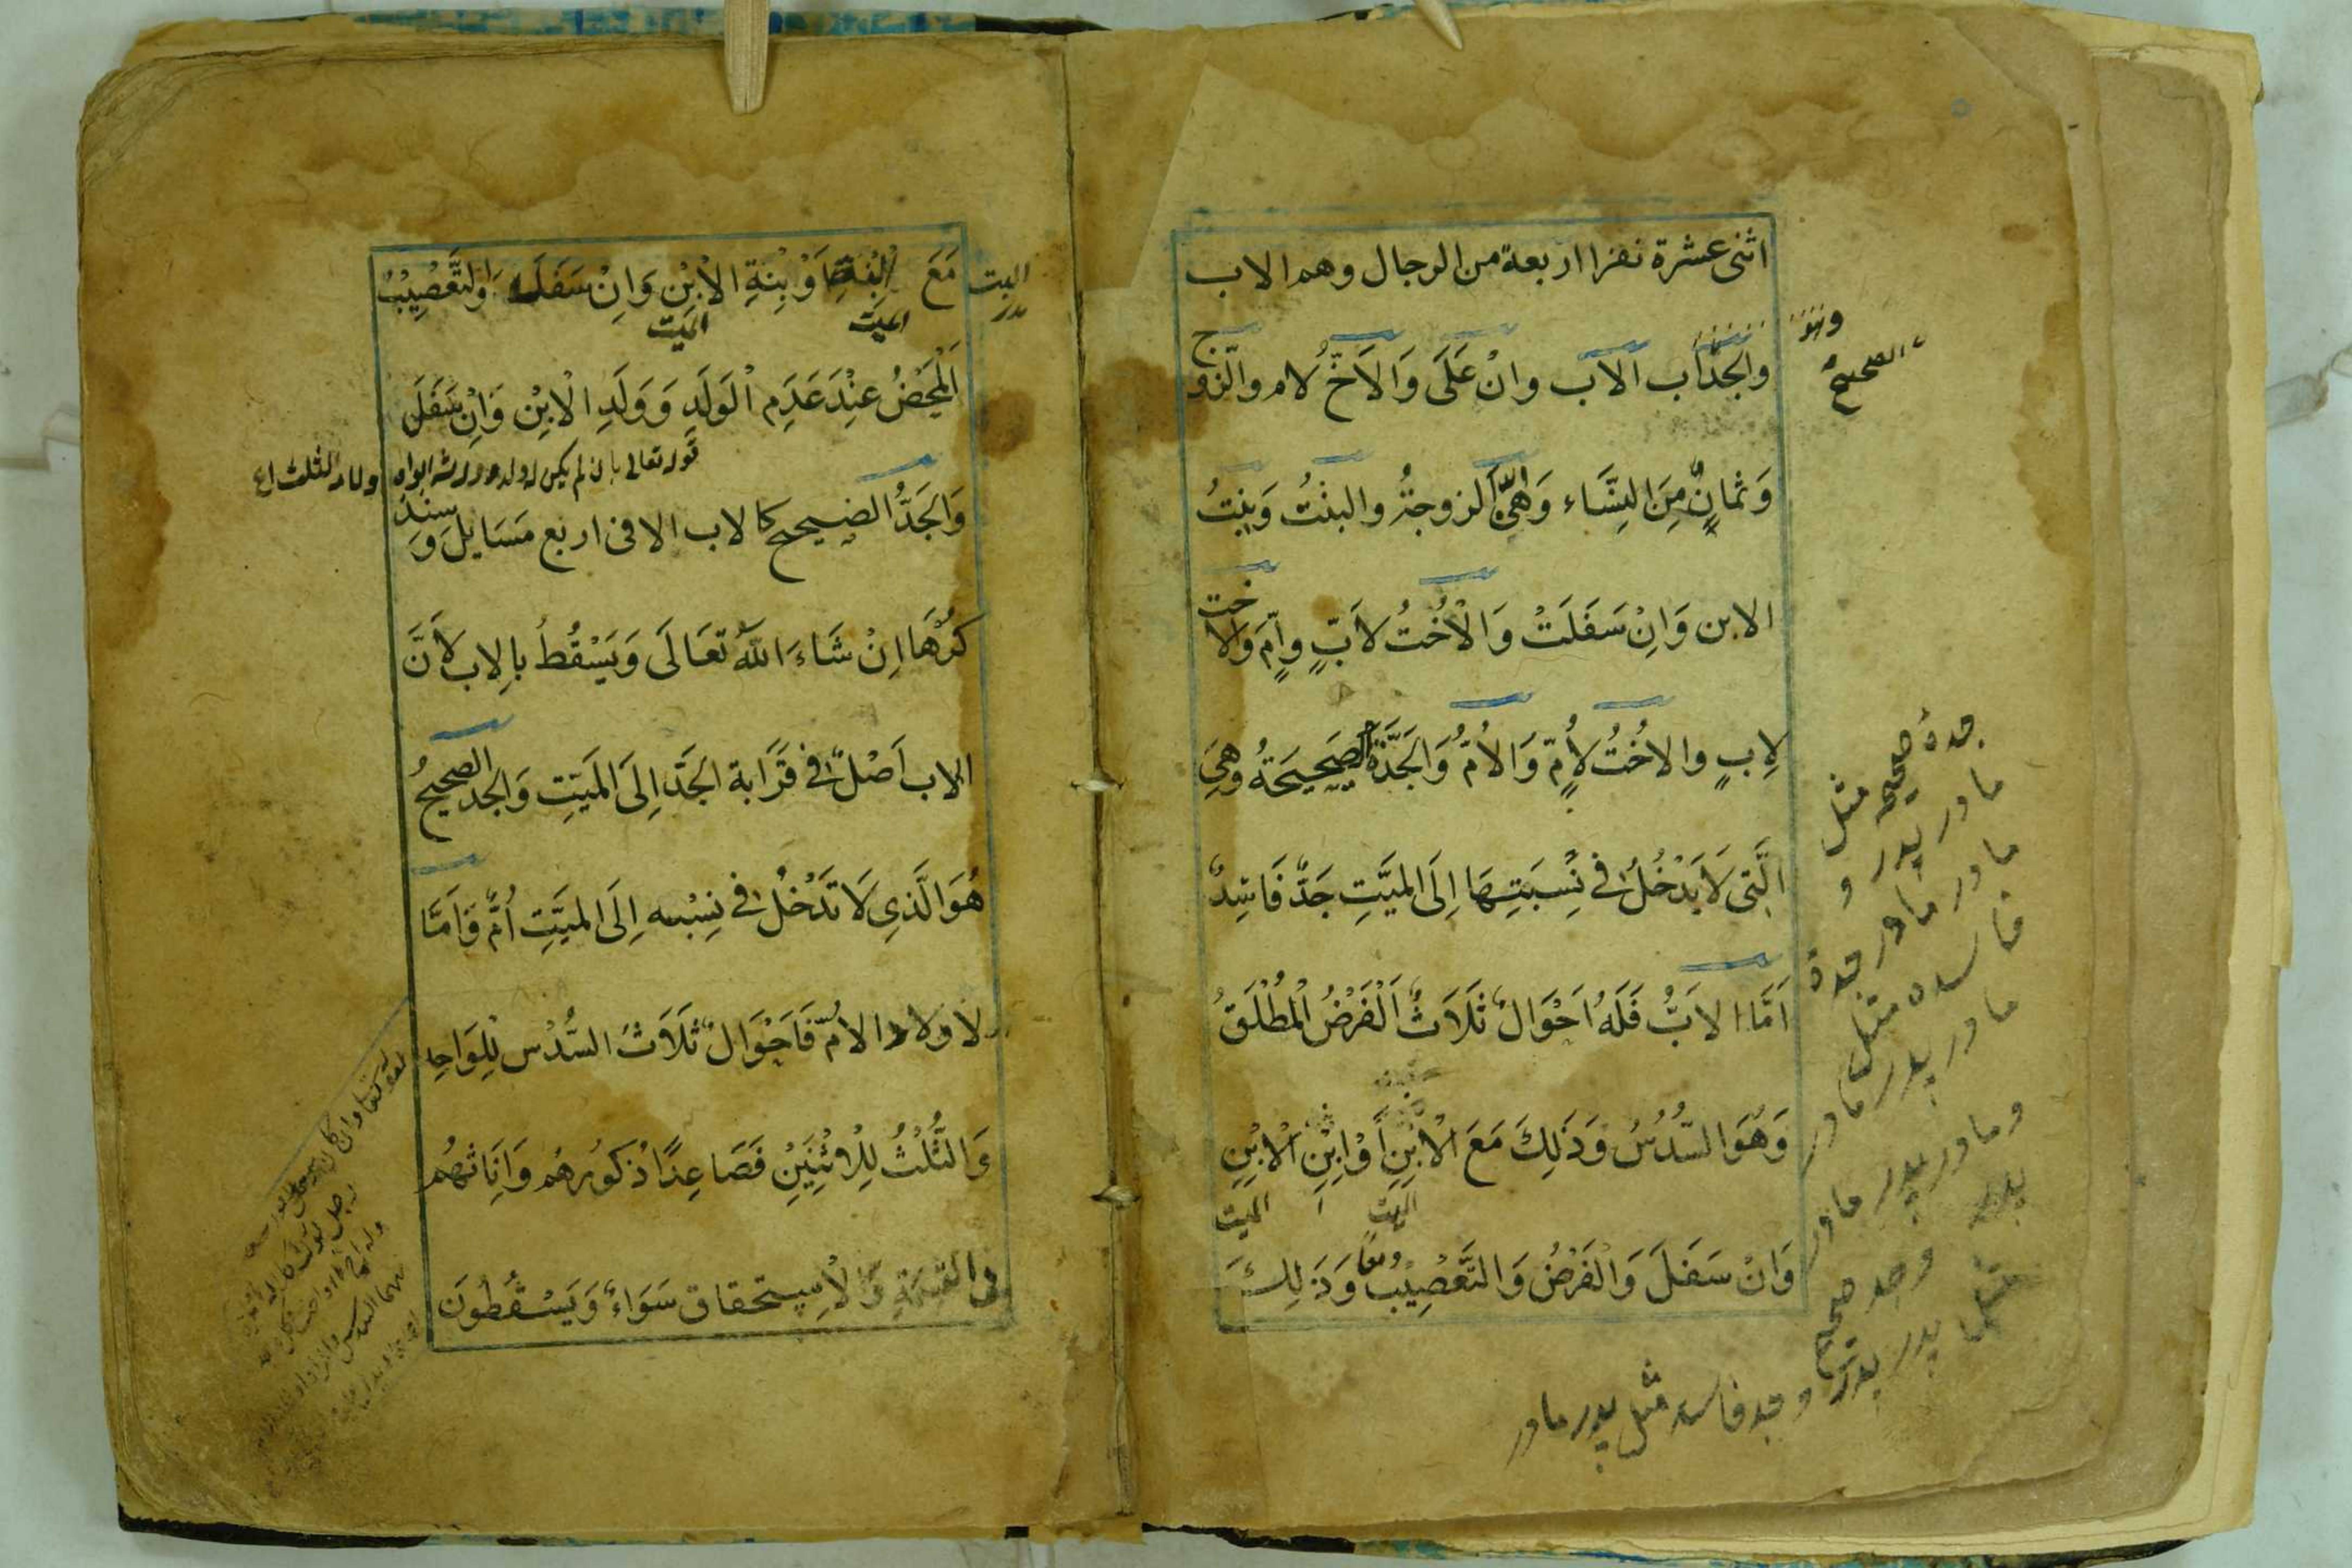 اثنی عشرة نفرا اربعة من الرجال وهم الاب
والجدّ اب الاب وانْ عَلَى وَالاَخّ لام والزّوج
وهو
الصحیحُ
وَثمانٌ مِنَ النِسَّاء وَهیَّ الزوجةُ والبنْتُ وَبِنتُ
الابن وَانِ سَفَلَتْ وَالْاُخْتُ لاَبٍّ وامٍّ وَالاخت
لِابٍ والاخُتُ لِاُمٍّ وَالاُمُّ وَالجَدَّةُ الصَحِیحَةُ وَهِیَ
الَّتِی لَا یَدْخُلُ فی نِسْبَتِهَا اِلَی المیَّتِ جَدٌّ فَاسِدٌ
اَمَّا الابُّ فَلَهُ اَحْوَالٌ ثَلَاثٌ اَلْفَرْضُ الْمُطْلَقُ
وَهُوَ السُّدُسُ وَذَلِكَ مَعَ الْاِبْنِ أَوْ اِبْنِ الْاِبْنِ
المیت
المیت
وَانْ سَفَلَ وَالْفَرْضُ وَالتَّعْصِیْبُ معًا وَذَلِكَ
جدهٔ صحیحه مثل
مادر پدر و
مادر مادر جدهٔ
فاسده مثل
مادر پدر مادر
ومادر پدر مادر
پدر وجد صحیح
مثل پدر پدر
وجد فاسد مثل پدر مادر
مَعَ اِبْنَةِ اَوْ بِنْةِ الْاِبْنِ وَانِْ سَفَلَ وَالتَّعْصِیْبُ
المیت
المیت
اَلْمَحْضُ عِنْدَ عَدَمِ الْوَلَدِ وَوَلَدِ الْاِبْنِ وَاِنْ سَفَلَ
قوله تعالی فان لم یکن له ولد وورثه ابواه
فلامه الثلث
وَالجَدُّ الصَحیحُ کالاب الا فی اربع مَسَایلَ وَسنذ
کُرُهَا اِنْ شَاءَ اللّٰهُ تَعَالَی وَیَسْقُطُ بالِاب لِاَنَّ
الاب اَصْلٌ فی قَرَابة الجَدّ اِلَی المَیِّتِ وَالجد الصحیحُ
هُوَ الَّذِی لَا تَدْخُلُ فی نِسْبته اِلَی المیَّتِ اُمٌّ وَاَمَّا
لاولاد الاُمِّ فَاَحْوَالٌ ثَلَاثَ السُّدْس لِلْوَاحِد
وَالثُّلْثُ لِلْاِثْنَیْنِ فَصَاعِدًا ذکُورهُم وَاِنَاثهُم
فی القسْمَةِ وَالْاِسِتحقاق سَوَاءٌ وَیَسْقُطُونَ